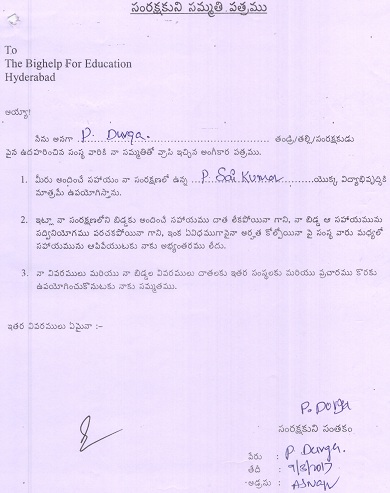 సంరక్షకుని సమ్మతి పత్రము
To
The Bighelp For Education
Hyderabad
అయ్యా!
నేను అనగా P. Durga. తండ్రి/తల్లి/సంరక్షకుడు
పైన ఉదహరించిన సంస్థ వారికి నా సమ్మతితో వ్రాసి ఇచ్చిన అంగీకార పత్రము.
1. మీరు అందించే సహాయం నా సంరక్షణలో ఉన్న P. Sai Kumar యొక్క విద్యాభివృద్ధికి
మాత్రమే ఉపయోగిస్తాను.
2. ఇట్లా నా సంరక్షణలోని బిడ్డకు అందించే సహాయము దాత లేకపోయినా గాని, నా బిడ్డ ఆ సహాయమును
సద్వినియోగము పరచకపోయినా గాని, ఇంక ఏవిధముగానైనా అర్హత కోల్పోయినా పై సంస్థ వారు మధ్యలో
సహాయమును ఆపివేయుటకు నాకు అభ్యంతరము లేదు.
3. నా వివరములు మరియు నా బిడ్డల వివరములు దాతలకు ఇతర సంస్థలకు మరియు ప్రచారము కొరకు
ఉపయోగించుకొనుటకు నాకు సమ్మతము.
ఇతర వివరములు ఏమైనా :-
P. Durga
సంరక్షకుని సంతకం
పేరు : P. Durga.
తేది : 9/8/2017
అడ్రసు :